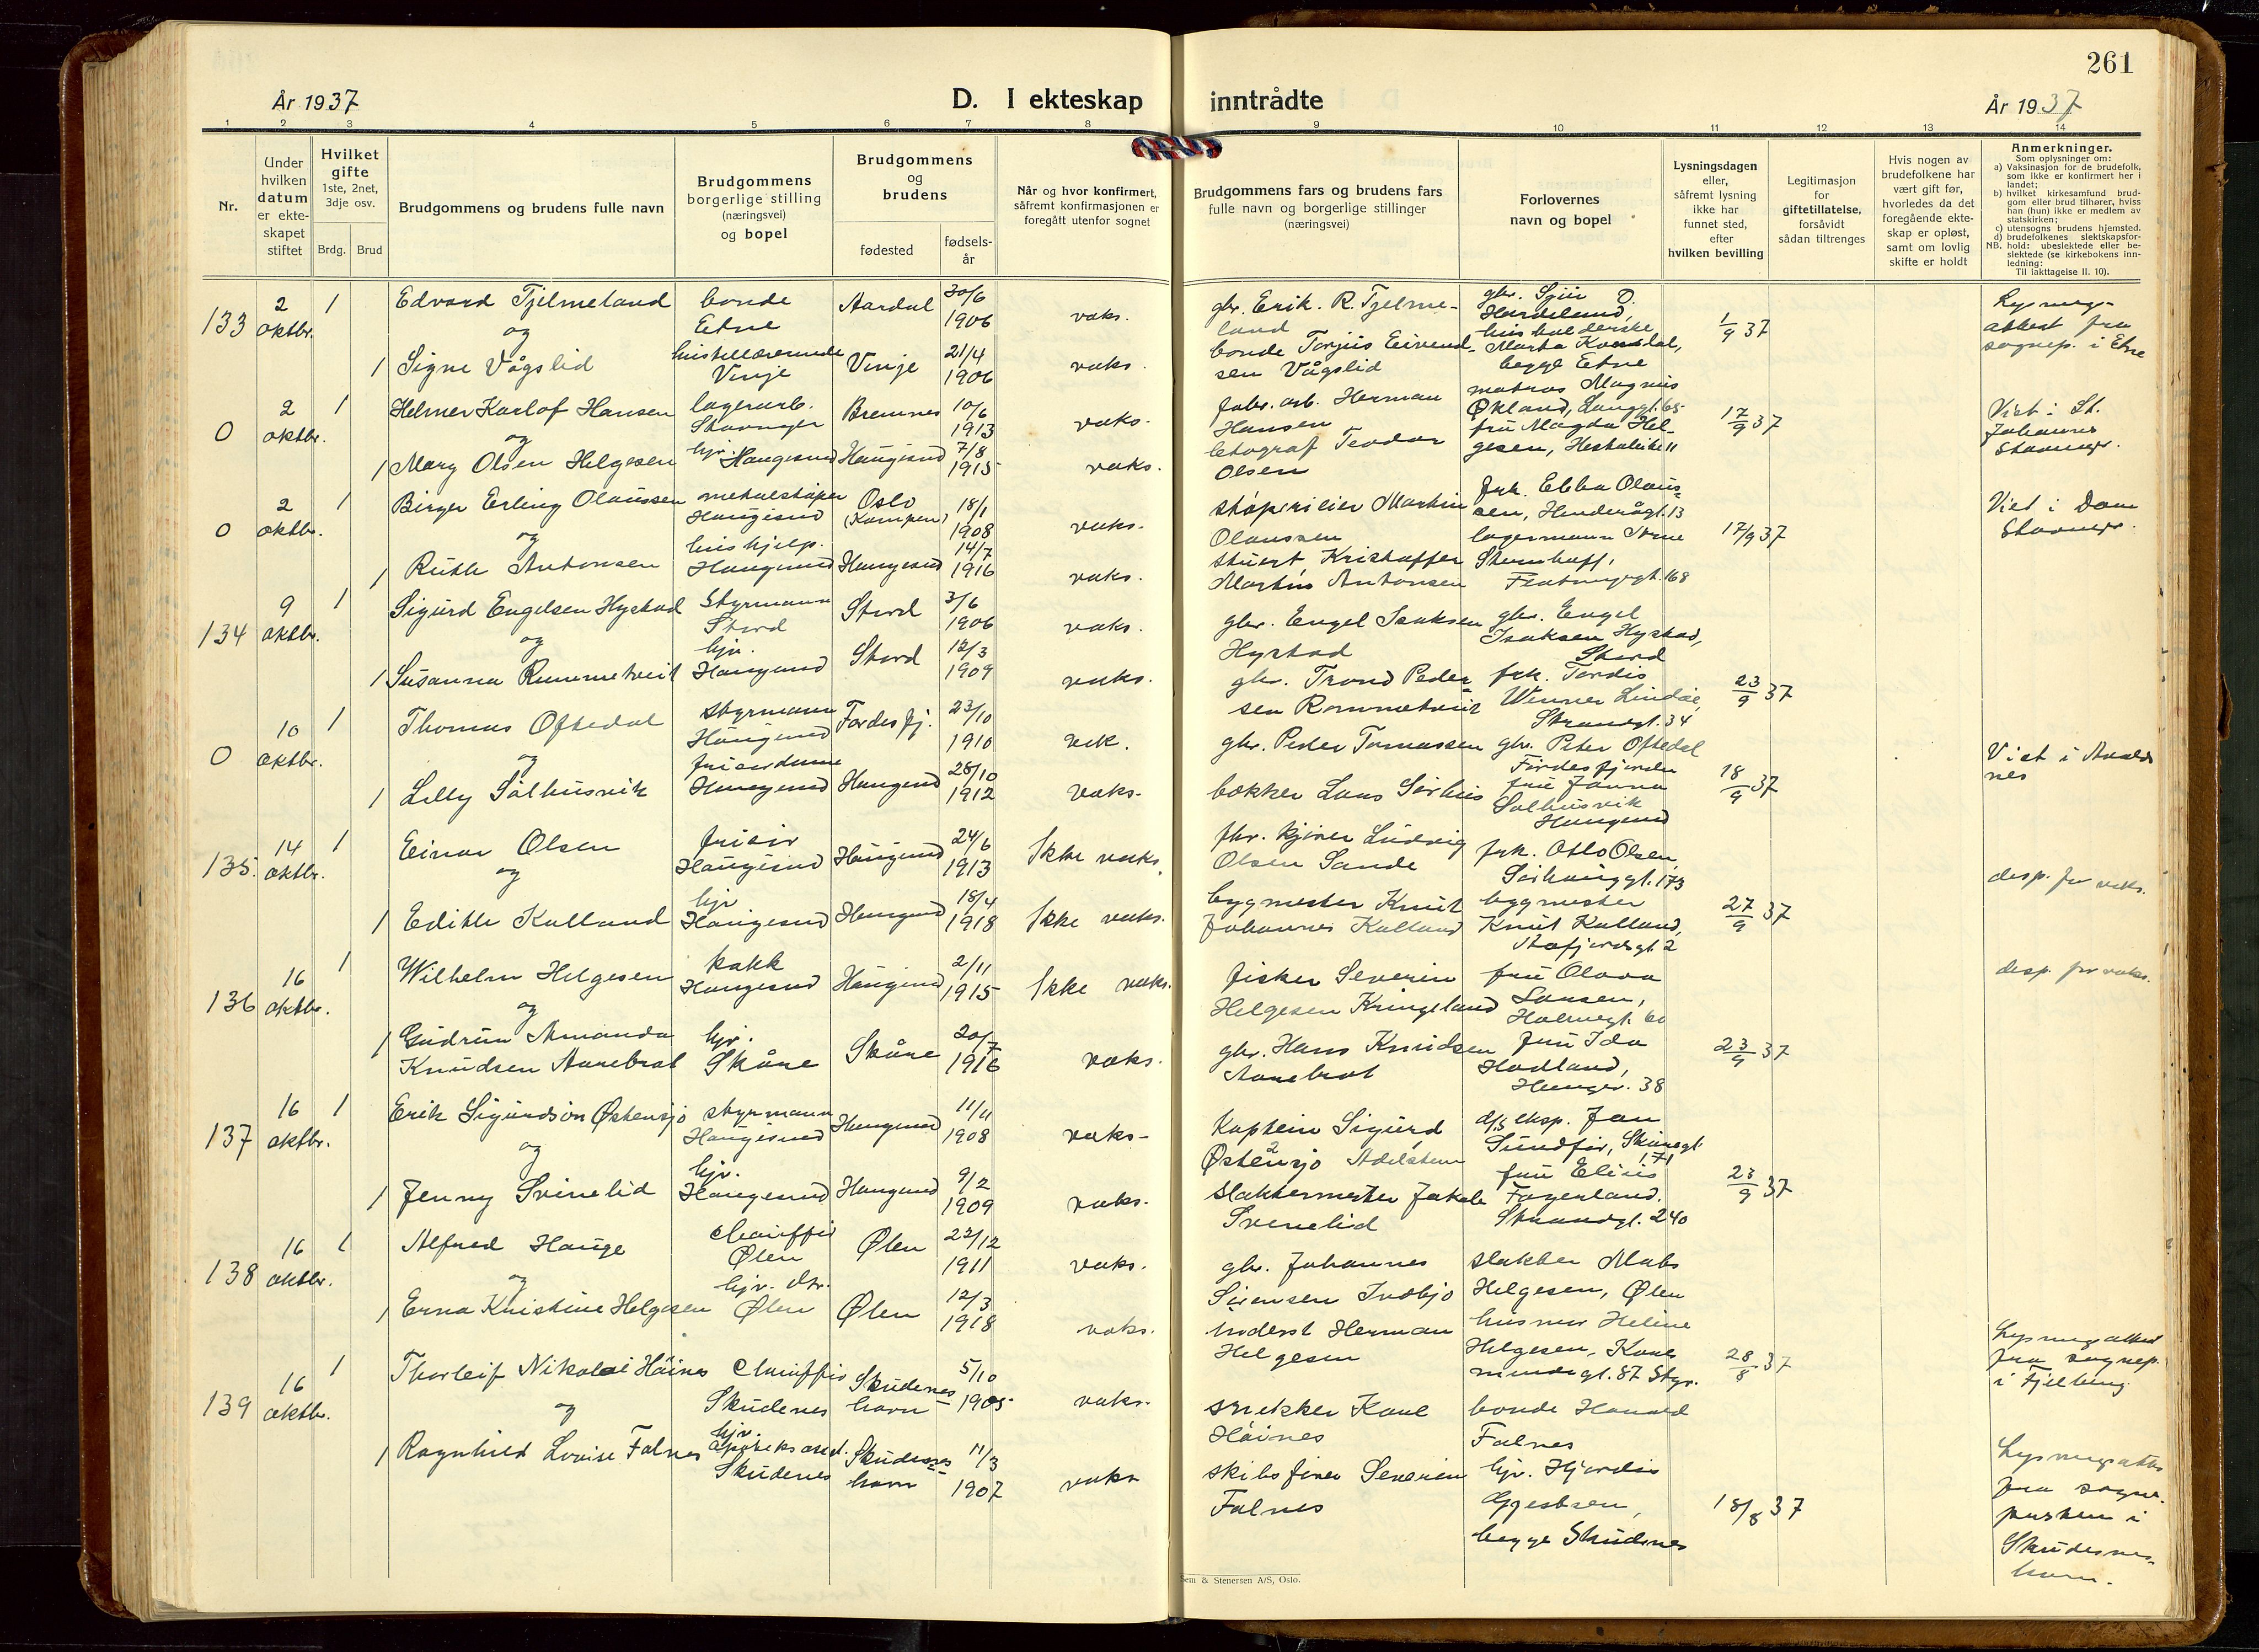 261
År 1937
D. I ekteskap inntrådte
År 1937
1 2 3 4 5 6 7 8 9 10 11 12 13 14
Nr.
Under
hvilken
datum
er ekte-
skapet
stiftet
Hvilket
gifte
1ste, 2net,
3dje osv.
Brdg. Brud
Brudgommens og brudens fulle navn
Brudgommens
borgerlige stilling
(næringsvei)
og bopel
Brudgommens
og
brudens
fødested
fødsels-
år
Når og hvor konfirmert,
såfremt konfirmasjonen er
foregått utenfor sognet
Brudgommens fars og brudens fars
fulle navn og borgerlige stillinger
(næringsvei)
Forlovernes
navn og bopel
Lysningsdagen
eller,
såfremt lysning
ikke har
funnet sted,
efter
hvilken bevilling
Legitimasjon
for
giftetillatelse,
forsåvidt
sådan tiltrenges
Hvis nogen av
brudefolkene har
vært gift før,
hvorledes da det
foregående ekte-
skap er opløst,
samt om lovlig
skifte er holdt
Anmerkninger.
Som oplysninger om:
a) Vaksinasjon for de brudefolk,
som ikke er konfirmert her i
landet;
b) hvilket kirkesamfund brud-
gom eller brud tilhører, hviss
han (hun) ikke er medlem av
statskirken;
c) utensogns brudens hjemsted.
d) brudefolkenes slektskapsfor-
NB. hold: ubeslektede eller be-
slektede (se kirkebokens inn-
ledning:
Til iakttagelse II. 10).
133 2 oktbr. 1
Edvard Tjelmeland
bonde
Etne
Aardal
30/6
1906
vaks.
gbr. Erik. R. Tjelme-
land
Hardeland,
husholderske
og
1 Signe Vågslid
Vinje
Vinje
21/4
1906
vaks.
bonde Torjus Eivend-
sen Vågslid
begge Etne
1/9 37
Lysnings-
attest fra
sognep. i Etne
0 2 oktbr. 1
Helmer Karlof Hansen
lagerarb.
Stavanger
Bremnes
10/6
1913
vaks.
fabr. arb. Herman
Hansen
matros Magnus
Økland, Langgt. 65
og
1 Mary Olsen Helgesen
hjv. Haugesund
Haugesund
7/8
1915
vaks.
Teodor
Olsen
fru Magda Hel-
gesen,
17/9 37
Viet i St.
Johannes
Stavanger.
0 2 oktbr. 1
Birger Erling Olaussen
metalstøper
Haugesund
Oslo
(Kampen)
18/1
1908
vaks.
Martin
Olaussen
frk. Ebba Olaus-
sen,
og
1 Ruth Antonsen
hushjelp.
Haugesund
Haugesund
14/7
1916
vaks.
stuert Kristoffer
Martin Antonsen
lagermann Arne
17/9 37
Viet i Dom
Stavanger.
134 9 oktbr. 1
Sigurd Engelsen Hystad
Styrmann
Stord
Stord
3/6
1906
vaks.
gbr. Engel Isaksen
Hystad
gbr. Engel
Isaksen Hystad,
Stord
og
1 Susanna Rommetveit
hjv.
Haugesund
Stord
12/3
1909
vaks.
gbr. Trond Peder-
sen Rommetveit
frk. Tordis
Wenner Lindøe,
Strandgt. 34
23/9 37
0 10 oktbr. 1
Thomas Oftedal
styrmann
Haugesund
Førdesfj.
23/10
1910
vak.
gbr. Peder Tomassen
gbr. Peter Oftedal
Førdesfjorden
og
1 Lilly Salhusvik
frisørdame
Haugesund
Haugesund
28/10
1912
vaks.
bakker Lars Sørhus
fru
Salhusvik
Haugesund
18/9 37
Viet i Avalds
nes
135. 14 oktbr. 1
Einar Olsen
frisør
Haugesund
Haugesund
24/6
1913
Ikke vaks.
Ludvig
Olsen Sande
Otto Olsen
Sørhauggt. 173
desp. for vaks.
og
1 Edith Kalland
hjv
Haugesund
Haugesund
18/4
1918
Ikke vaks.
bygmester Knut
Johannes Kalland
byggmester
Knut Kalland,
27/9 37
136 16 oktbr. 1
Wilhelm Helgesen
kokk
Haugesund
Haugesund
2/11
1915
Ikke vaks.
fisker Severin
Helgesen Kringeland
fru Olava
Larsen,
desp. for vaks.
og
1 Gudrun Amanda
Knudsen Aarebrot
hjv.
Skåre
Skåre
20/7
1916
vaks.
gbr. Hans Knudsen
Aarebrot
fru Ida
Hodland,
23/9 37
137 16 oktbr. 1
Erik Sigurdson Østensjo
styrmann
Haugesund
Haugesund
11/11
1908
vaks.
Kaptein Sigurd
Østensjo Adelsten
d/s eksp. Jan
Sundfør, Skåregt
171
og
1 Jenny Svinelid
hjv.
Haugesund
Haugesund
9/2
1909
vaks.
slaktermester Jakob
Svinelid
Fagerland.
Strandgt. 240
23/9 37
138 16 oktbr. 1
Alfred Hauge
chauffør
Ølen
Ølen
23/12
1911
vaks.
gbr. Johannes
slakter Mabs
Helgesen, Ølen
og
1 Erna Kristine Helgesen
Ølen
Ølen
12/3
1918
vaks.
Herman
Helgesen
husmor Heline
Helgesen,
28/8 37
Lysningsattest
fra sognep.
i Fjelberg
139 16 oktbr. 1
Thorleif Nikolai Håines
Chauffør
Skudenes
Skudenes-
havn
5/10
1905
vaks.
snekker Karl
Håines
bonde Harald
Falnes
og
1 Ragnhild Lovise Falnes
hjv.
Skudenes
Skudenes-
havn
11/3
1907
vaks
skibsfører Severin
Falnes
hjv. Hjørdis
begge Skudenes
18/8 37
Lysningsattes
fra sogne-
presten i
Skudesnes-
havn.
Sem & Stenersen A/S, Oslo.